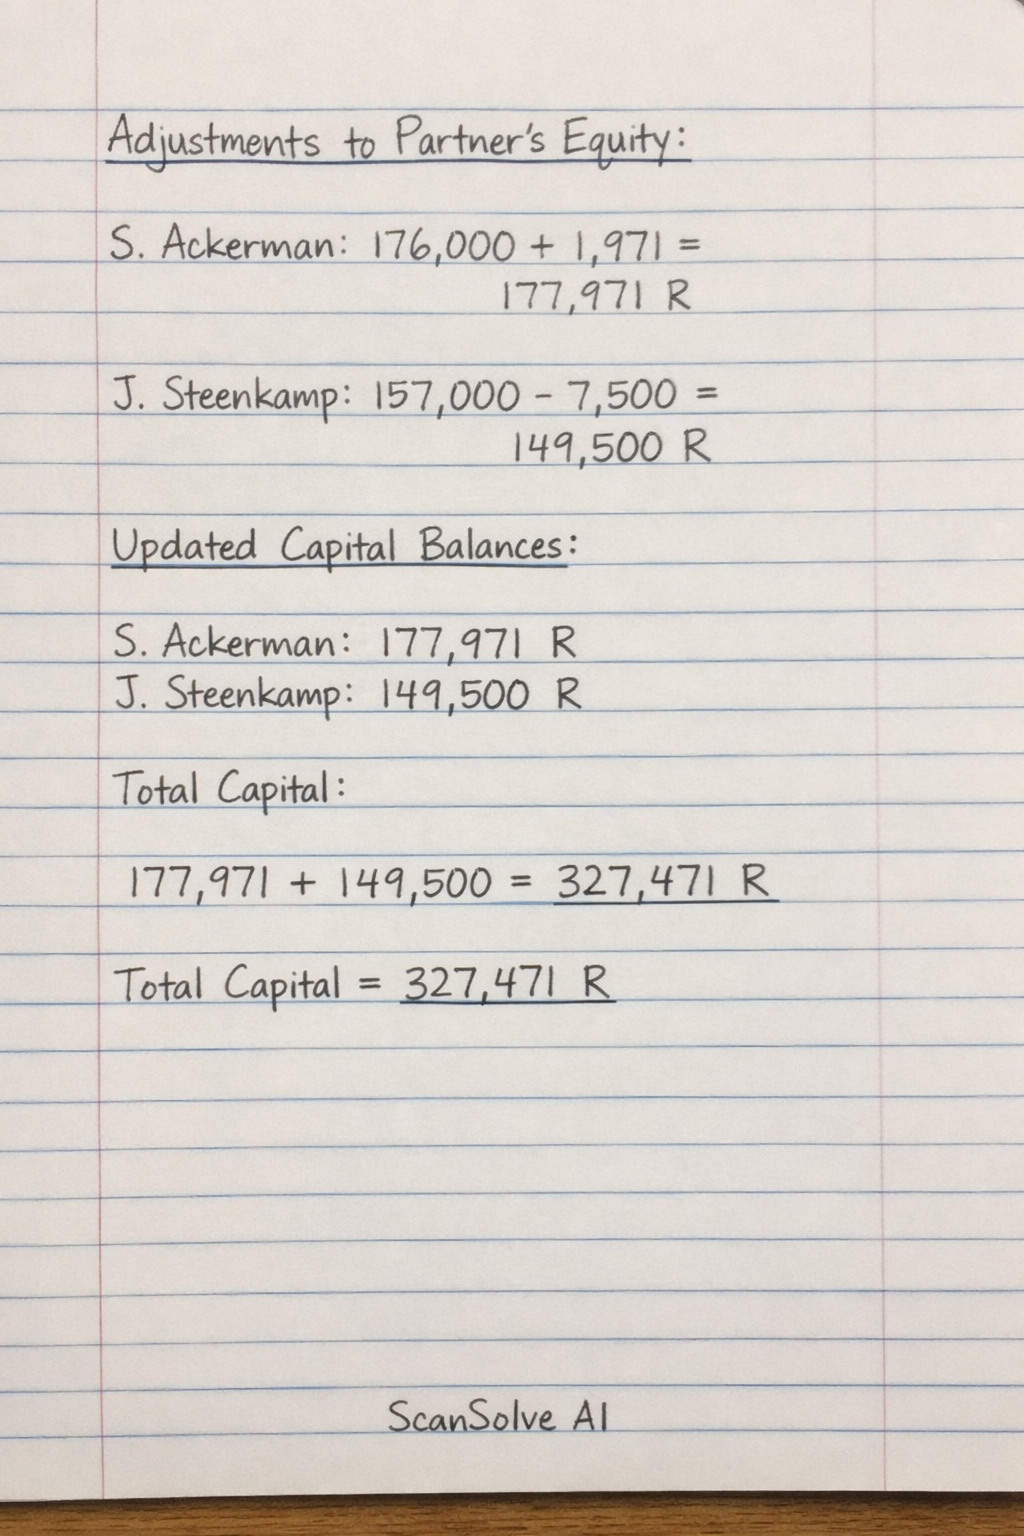 Adjustments to Partner's Equity:
S. Ackerman: 176,000 + 1,971 =
177,971 R
J. Steenkamp: 157,000 - 7,500 =
149,500 R
Updated Capital Balances:
S. Ackerman: 177,971 R
J. Steenkamp: 149,500 R
Total Capital:
177,971 + 149,500 = 327,471 R
Total Capital = 327,471 R
ScanSolve AI